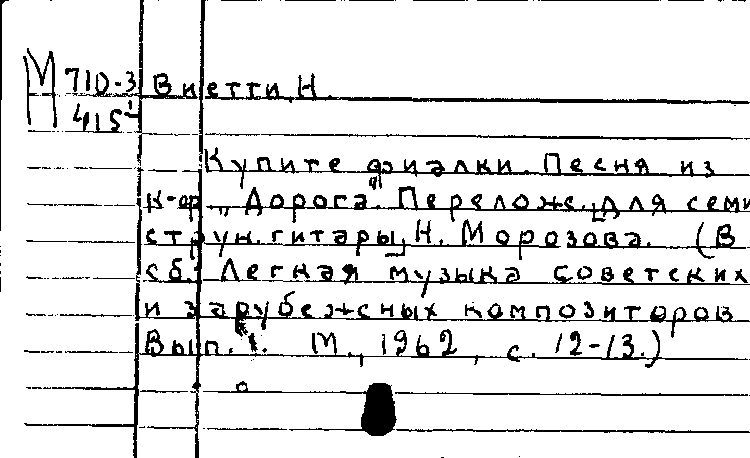 М 710-3 Виетти, Н.
415¹
Купите фиалки. Песня из
к-ф „Дорога". Перелож. для семи
струн. гитары, Н. Морозова. (В
сб.: Легкая музыка советских
и зарубежных композиторов
Вып. 1. М., 1962, с. 12-13.)